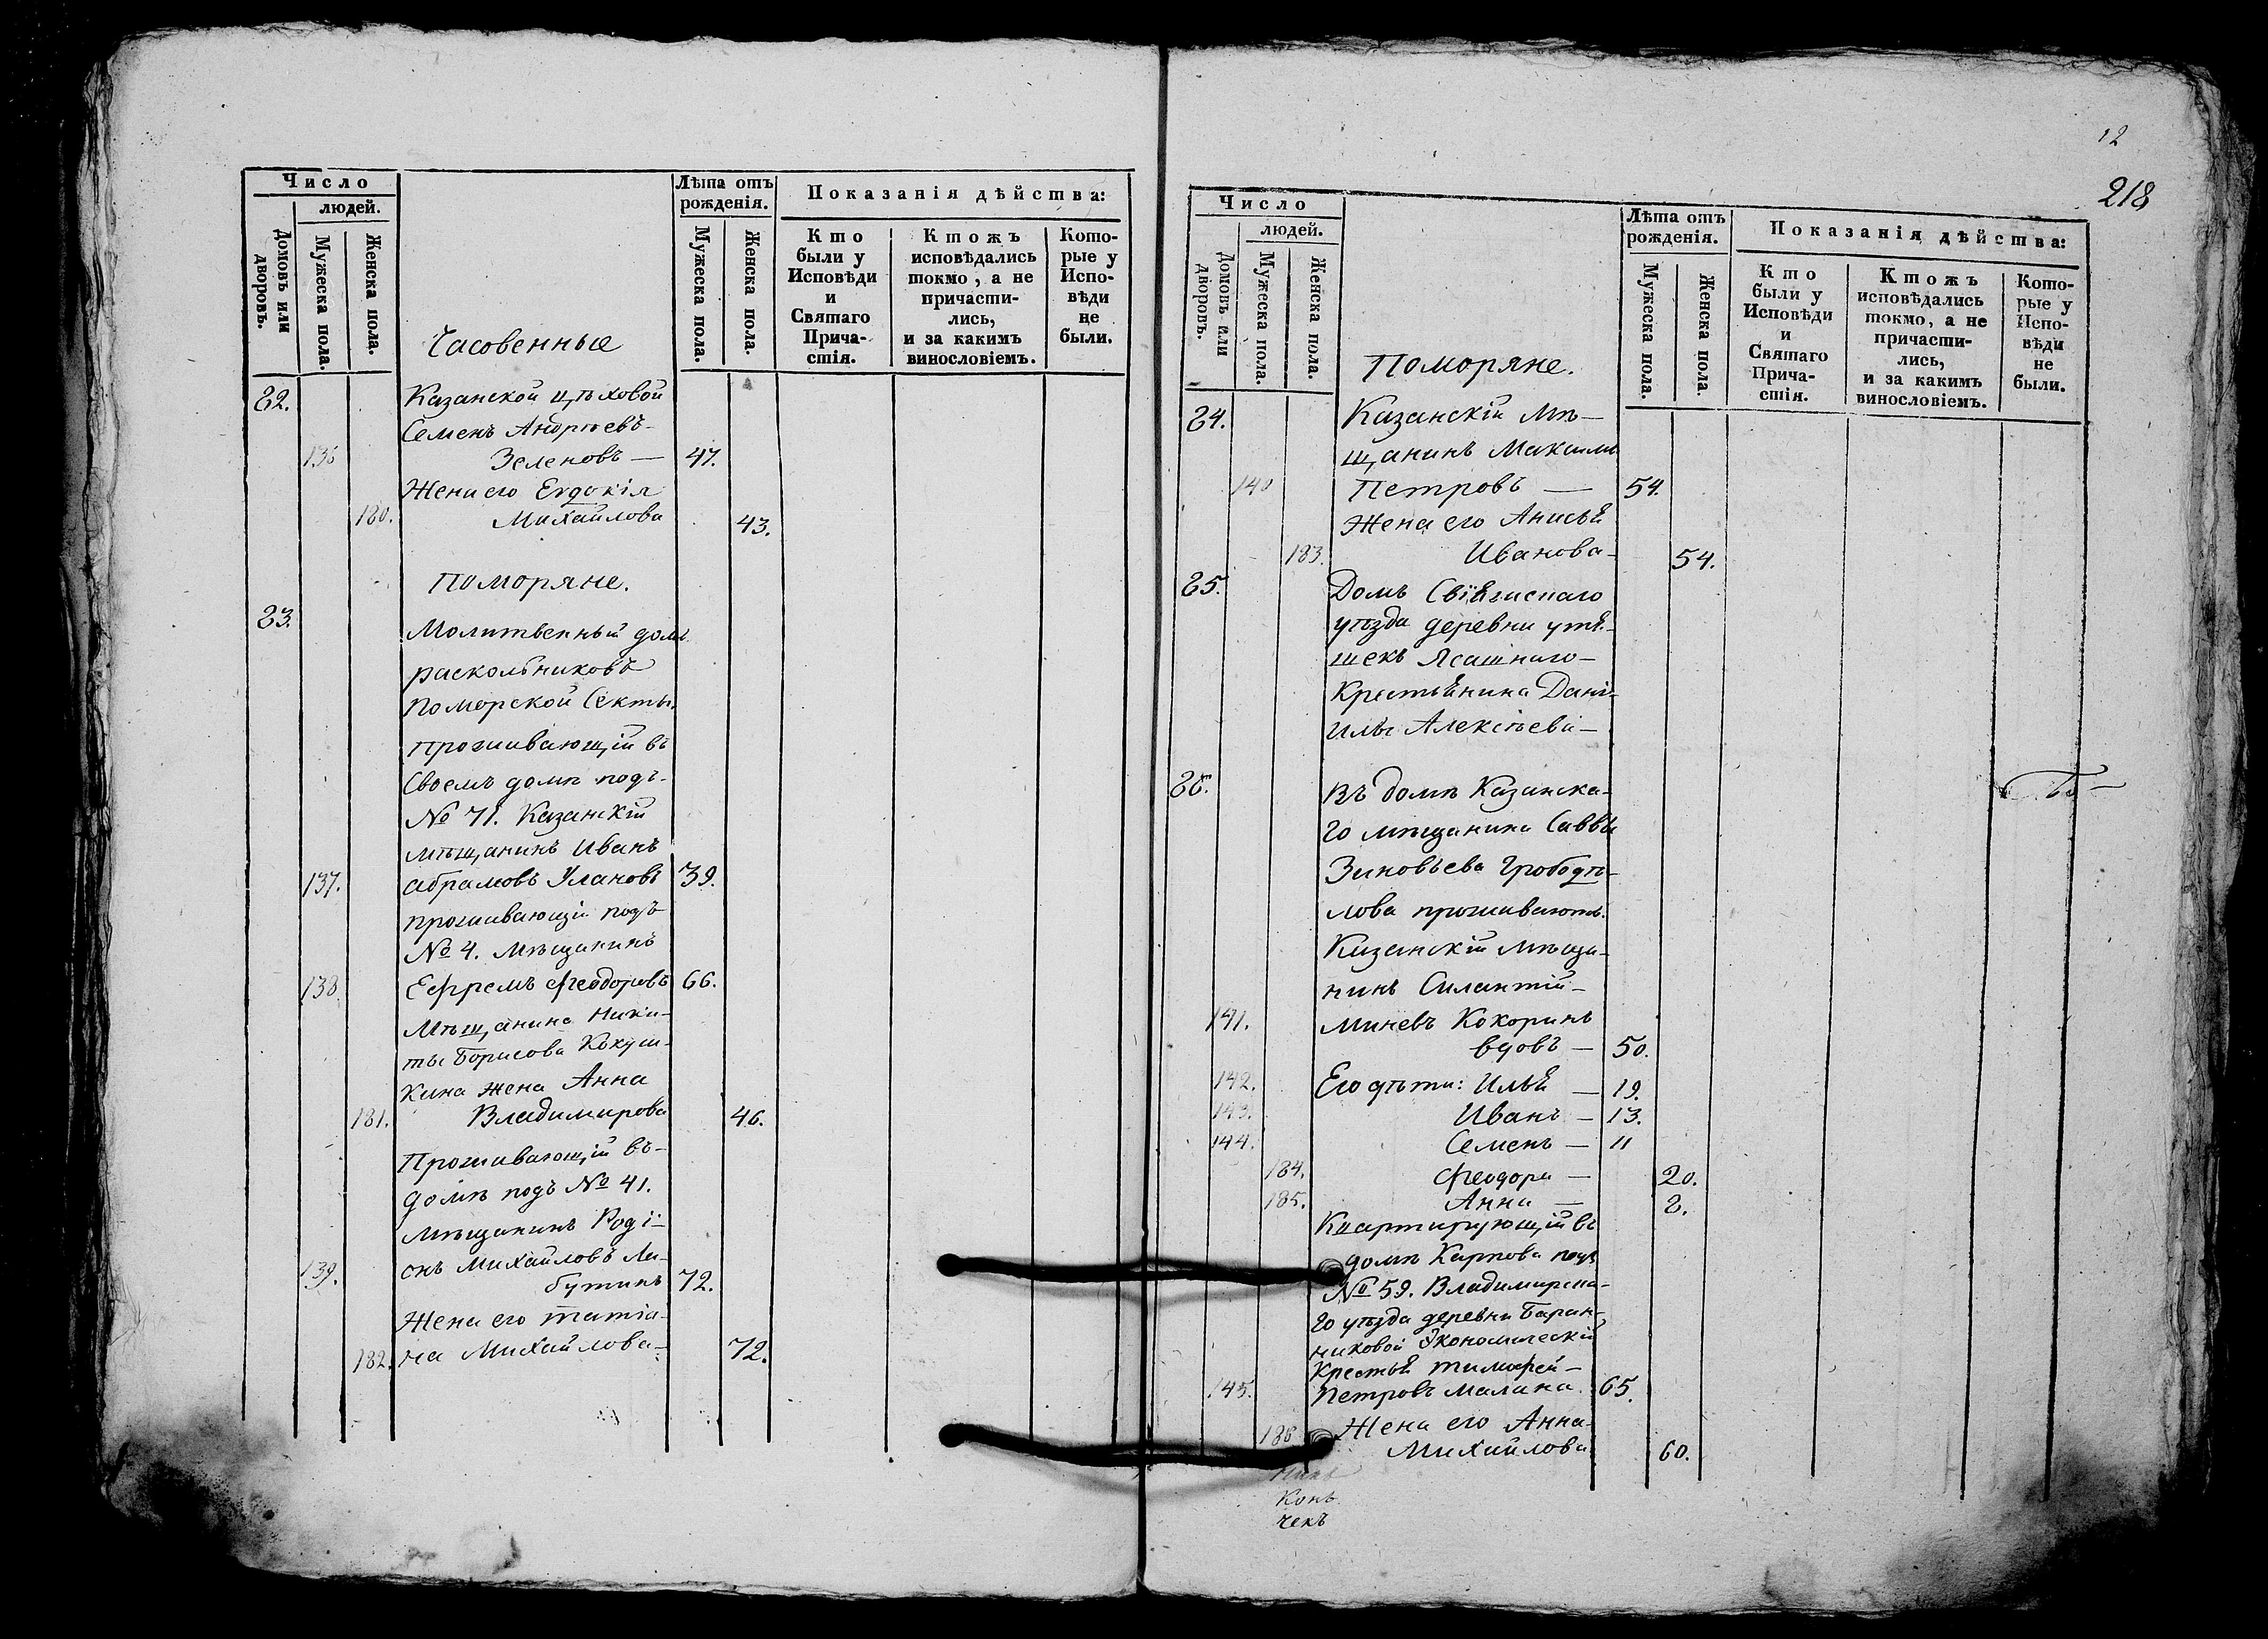 Число
людей.
Домовъ или дворовъ.
Мужеска пола.
Женска пола.
Лѣта отъ рожденія.
Мужеска пола.
Женска пола.
Показанія дѣйства:
Кто были у Исповѣди и Святаго Прича-стія.
Ктожъ исповѣдались токмо, а не причасти-лись, и за какимъ винословіемъ.
Кото-рые у Испо-вѣди не были.
Часовенные
82. Казанской цѣховой
Семенъ Андреевъ
136 Зеленовъ — 47.
Жена его Евдокія
180. Михайлова 43.
Поморяне.
83.
Молитвенный домъ
раскольниковъ
поморской Секты.
проживающій въ
своемъ домѣ подъ
№ 71. Казанскій
мѣщанинъ Иванъ
137. Абрамовъ Улановъ 39.
проживающій подъ
№ 4. Мѣщанинъ
138. Ефремъ Феодоровъ 66.
Мѣщанина Ники-
ты Борисова Кокуш-
кина жена Анна
181. Владимирова 46.
Проживающій въ
домѣ подъ № 41.
мѣщанинъ Роді-
139. онъ Михайловъ Ла-
бутинъ 72.
Жена его татіа-
182. на Михайлова 72.
12
218
Число
людей.
Домовъ или дворовъ.
Мужеска пола.
Женска пола.
Лѣта отъ рожденія.
Мужеска пола.
Женска пола.
Показанія дѣйства:
Кто были у Исповѣди и Святаго Прича-стія.
Ктожъ исповѣдались токмо, а не причасти-лись, и за какимъ винословіемъ.
Кото-рые у Испо-вѣди не были.
Поморяне.
84. Казанскій Мѣ-
щанинъ Максимъ
140 Петровъ — 54.
Жена его Анисья
183. Иванова 54.
85. Домъ Свіяжскаго
уѣзда деревни утя-
шекъ Ясашнаго
Крестьянина Дані-
илы Алексѣева
86. Въ домѣ Казанска-
го мѣщанина Саввы
Зиновьева Грободѣ-
лова проживаютъ.
Казанскій мѣща-
нинъ Силантій
141. Минѣвъ Кокоринъ
вдовъ — 50.
142. Его дѣти: Илья — 19.
143. Иванъ — 13.
144. Семенъ — 11
184. Феодора — 20.
185. Анна — 8.
Квартирующій въ
домѣ Карпова подъ
№ 59. Владимирска-
го уѣзда деревни Баран-
никовой Экономическій
Крестья тимофей
145. Петровъ Малина 65.
186 Жена его Анна
Михайлова 60.
конъ
чекъ